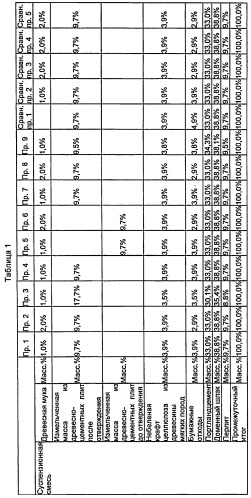 Таблица 1
Суспензионная смесь Пр. 1 Пр. 2 Пр. 3 Пр. 4 Пр. 5 Пр. 6 Пр. 7 Пр. 8 Пр. 9 Сравн. пр. 1 Сравн. пр. 2 Сравн. пр. 3 Сравн. пр. 4 Сравн. пр. 5
Древесная мука Масс.% 1,0% 2,0% 1,0% 1,0% 1,0% 2,0% 1,0% 2,0% 1,0% 1,0% 2,0% 1,0% 2,0%
Измельченная
масса из
древесно-
цементных плит
после
отверждения Масс.% 9,7% 9,7% 17,7% 9,7% 9,7% 9,7% 9,5% 9,7% 9,7% 9,7% 9,7% 9,7%
Измельченная
масса из
древесно-
цементных плит
до отверждения Масс.% 9,7% 9,7%
Небеленая
крафт-
целлюлоза из
древесины
мягких пород Масс.% 3,9% 3,9% 3,5% 3,9% 3,9% 3,9% 3,9% 3,9% 3,8% 4,9% 3,9% 3,9% 3,9% 3,9%
Бумажные
отходы Масс.% 3,9% 2,9% 3,5% 3,9% 3,9% 2,9% 3,9% 2,9% 3,8% 4,9% 3,9% 2,9% 3,9% 2,9%
Портландцемент Масс.% 33,0% 33,0% 30,1% 33,0% 33,0% 33,0% 33,0% 33,0% 34,3% 33,0% 33,0% 33,0% 33,0% 33,0%
Доменный шлак Масс.% 38,8% 38,8% 35,4% 38,8% 38,8% 38,8% 38,8% 38,8% 38,1% 38,8% 38,8% 38,8% 38,8% 38,8%
Перлит Масс.% 9,7% 9,7% 8,8% 9,7% 9,7% 9,7% 9,7% 9,7% 9,5% 9,7% 9,7% 9,7% 9,7% 9,7%
Промежуточный
итог Масс.% 100,0% 100,0% 100,0% 100,0% 100,0% 100,0% 100,0% 100,0% 100,0% 100,0% 100,0% 100,0% 100,0% 100,0%